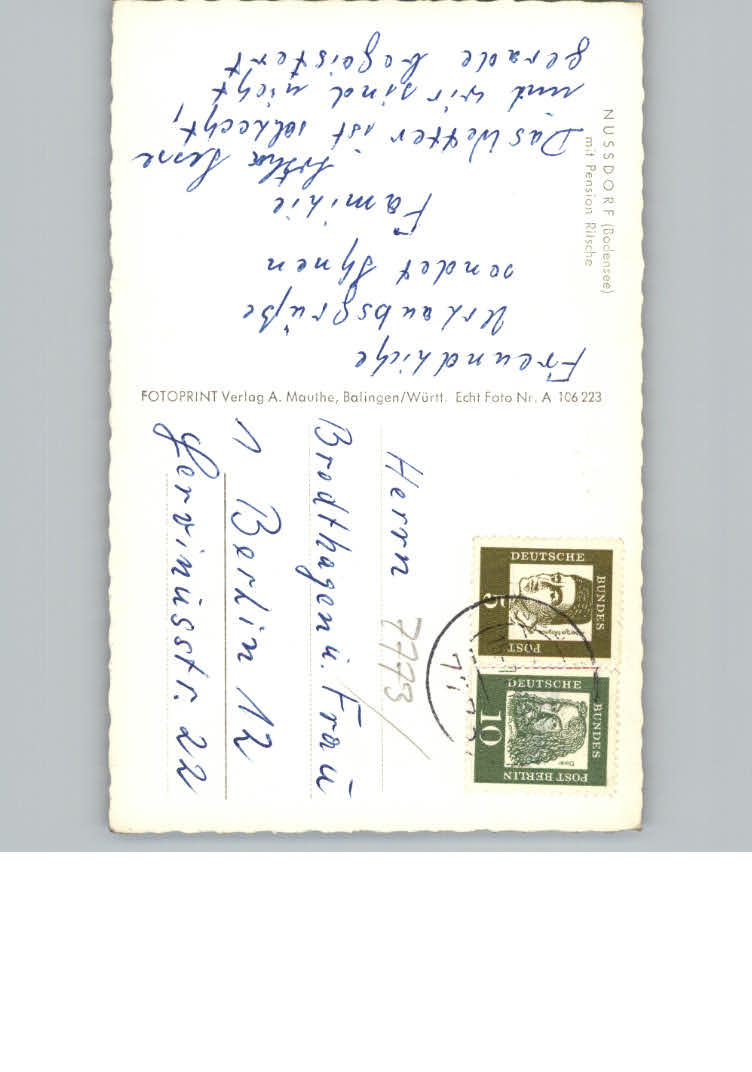 NUSSDORF (Bodensee)
mit Pension Ritsche
Freundliche
Urlaubsgrüße
sendet Ihnen
Familie
Das Wetter ist schlecht,
und wir sind nicht
gerade begeistert
FOTOPRINT Verlag A. Mauthe, Balingen/Württ. Echt Foto Nr. A 106 223
DEUTSCHE
BUNDES
POST
5
DEUTSCHE
BUNDES
POST BERLIN
10
Dürer
7773
Herrn
Brodthagen u. Frau
1 Berlin 12
Gervinusstr. 22